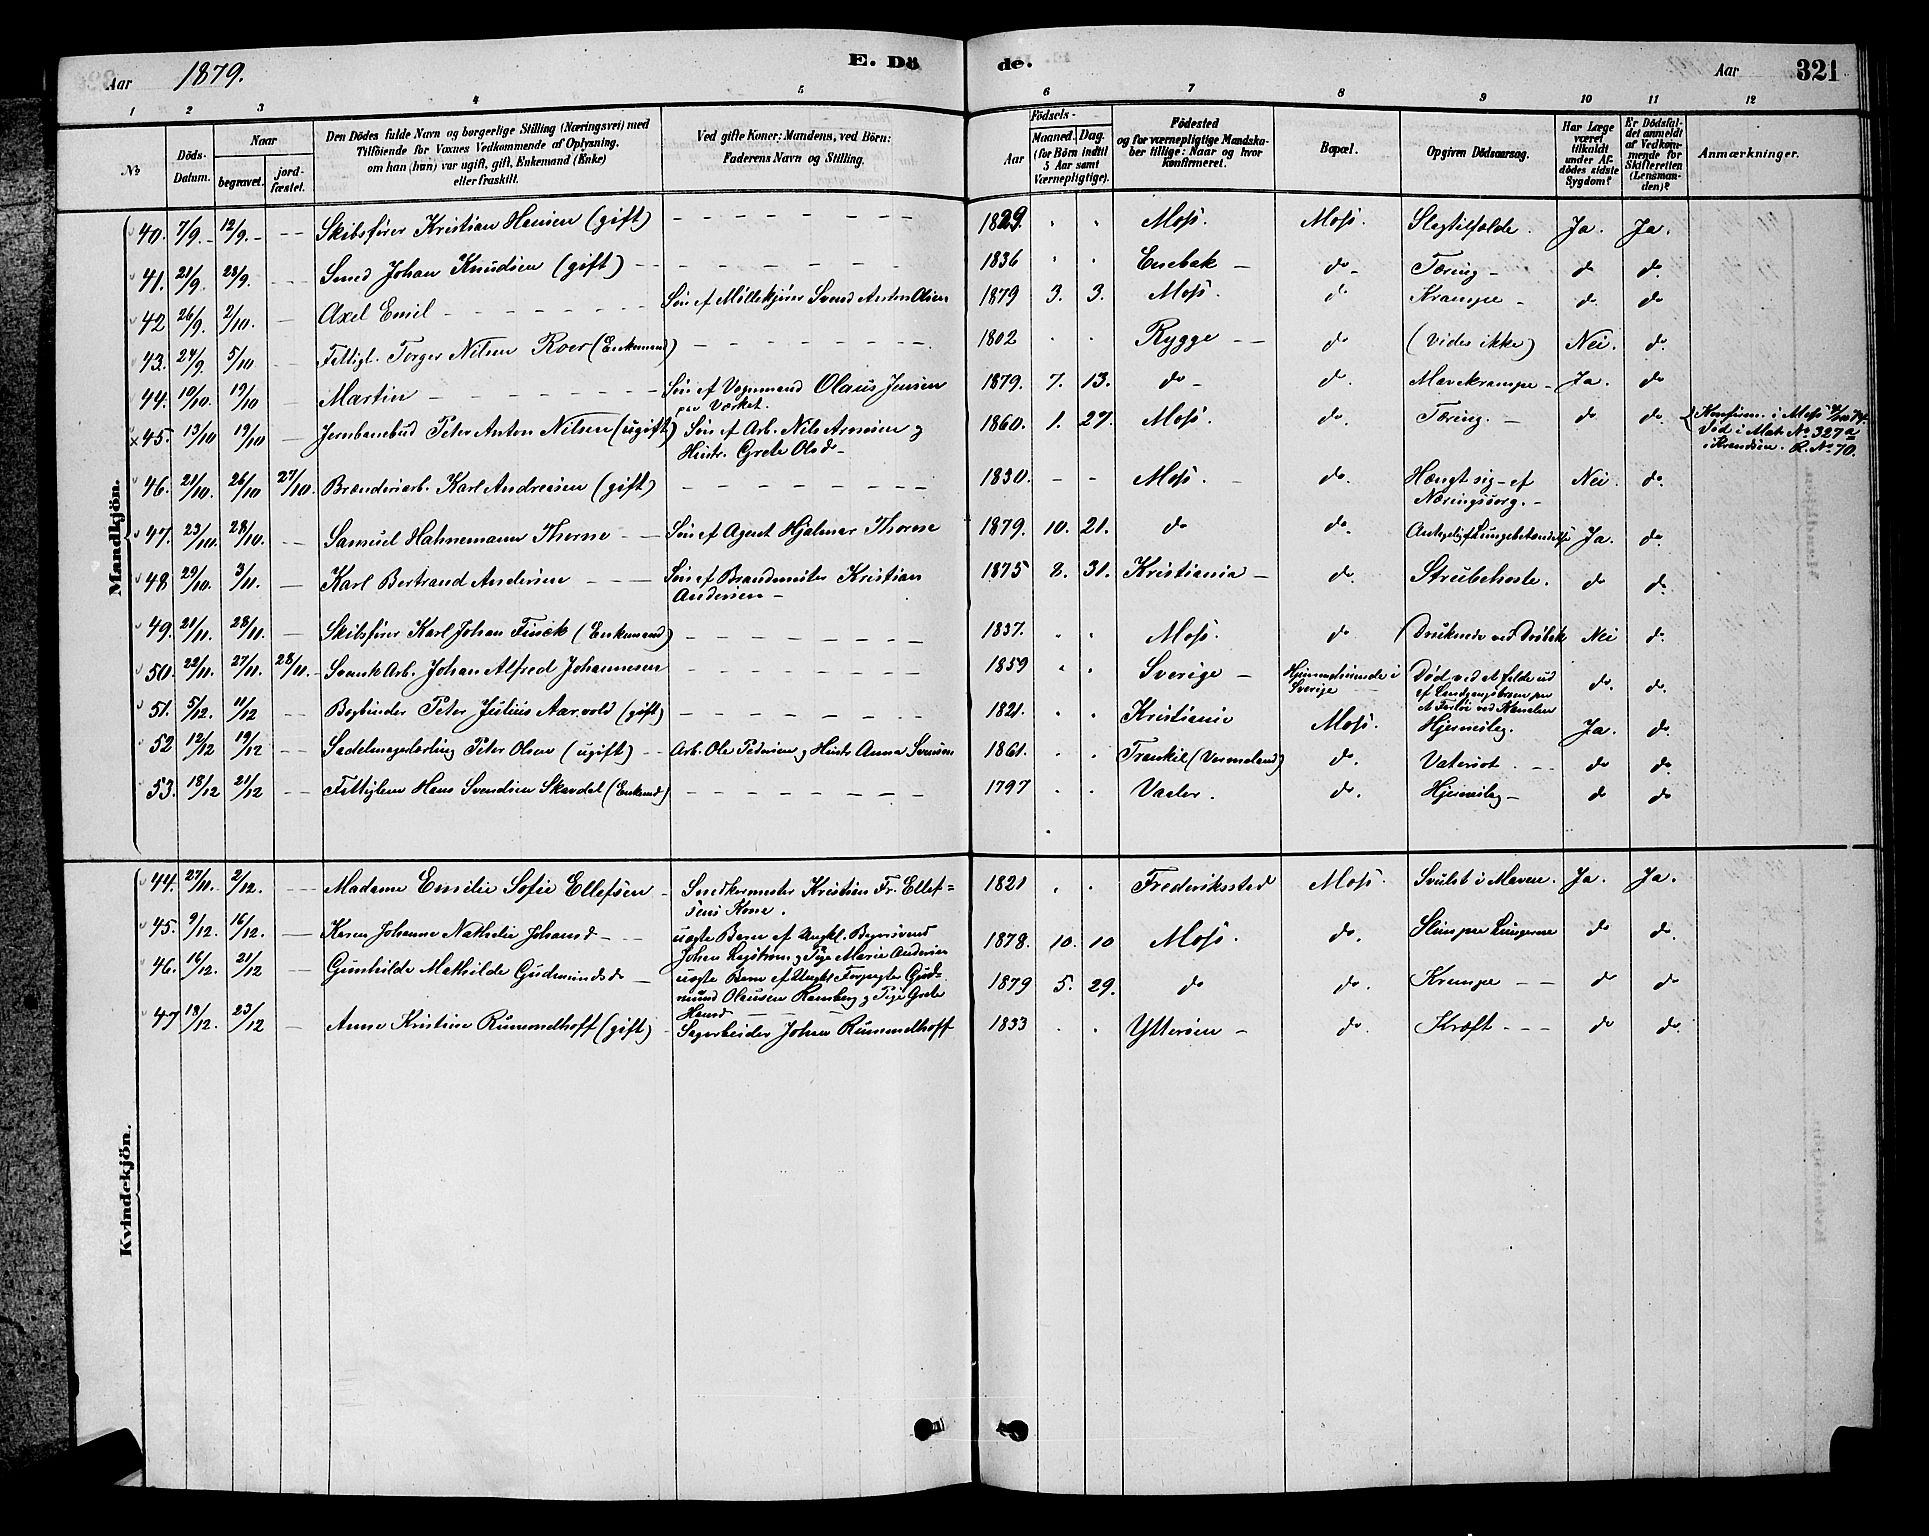 Aar 1879. E. Dö de. Aar 321
1 2 3 4 5 6 7 8 9 10 11 12
No Döds-Datum. Naar begravet. jordfæstet. Den Dödes fulde Navn og borgerlige Stilling (Næringsvei) med Tilföiende for Voxnes Vedkommende af Oplysning, om han (hun) var ugift, gift, Enkemand (Enke) eller fraskilt. Ved gifte Koner: Mandens, ved Börn: Faderens Navn og Stilling. Födsels- Aar Maaned. Dag. (for Börn indtil 5 Aar samt Værnepligtige). Födested og for værnepligtige Mandskaber tillige: Naar og hvor konfirmeret. Bopæl. Opgiven Dödsaarsag. Har Læge været tilkaldt under Afdödes sidste Sygdom? Er Dödsfaldet anmeldt af Vedkommende for Skifteretten (Lensmanden)? Anmærkninger.
Mandkjön.
40. 7/9. 12/9. Skibsfører Kristian Hansen (gift) 1829. Moss. Moss. Slagtilfælde. Ja. Ja.
41. 21/9. 28/9. Smed Johan Knudsen (gift) 1836 Enebak do Tæring do do
42 26/9. 2/10. Axel Emil Søn af Møllekjører Svend Anton Olsen 1879 3. 3. Moss. do Krampe do do
43. 24/9. 5/10 Fattigl. Torger Nilsen Roer (Enkemand) 1802 Rygge do (vides ikke) Nei. do
44. 10/10. 19/10 Martin Søn af Vognmand Olaus Jensen paa Værket. 1879. 7. 13. do do. Mavekrampe Ja. do
45. 13/10 19/10 Jernbanebud Peter Anton Nilsen (ugift) Søn af Arb. Nils Aronsen og Hustr. Grete Olsd. 1860. 1. 27. Moss. do. Tæring. do do. Konfirm. i Moss
Død i Mat. No 327a
R. No 70.
46. 21/10. 26/10 27/10. Brænderiarb. Karl Andreasen (gift) 1830. Moss. do. Hængt sig af Næringssorg. Nei. do.
47. 23/10. 28/10. Samuel Hahnemann Thorne Søn af Agent Hjalmar Thorne 1879. 10. 21. do do. Ja. do.
48 29/10. 3/11. Karl Bertrand Andersen Søn af Brandmester Kristian Andersen 1875 8. 31. Kristiania do. Strubehoste. do do.
49. 21/11. 28/11. Skibsfører Karl Johan Finck (Enkemand) 1837. Moss. do Druknede ved Drøbak Nei do.
50. 22/11. 27/11. 28/11. Svensk Arb. Johan Alfred Johannesen 1859 Sverige Hjemmehørende i Sverige Død ved at falde ud af Landgangsbroen paa ved Kanalen do. do.
51. 5/12. 11/12 Bogbinder Peter Julius Aarvold (gift) 1821. Kristiania Moss. Hjerneslag. Ja. do.
52 12/12 19/12 Sadelmagerlærling Peter Olsen (ugift) Arb. Ole Pedersen og Hustr. Anna Svensen 1861. Trankil (Vermeland) do. Vatersot. do do.
53. 18/12 21/12 Fattiglem Hans Svendsen Skavdal (Enkemd) 1797 Vaaler. do. Hjerneslag do do
Kvindekjön.
44. 27/11. 2/12. Madame Emilie Sofie Ellefsen Snedkermester Kristian Fr. Ellefsens Kone. 1821 Frederiksstad Moss. Svulst i Maven. Ja. Ja.
45. 9/12. 16/12. Karen Johanne Nathalie Johansd. uægte Barn af Ungkl. Johan og Pige Marie Andersen 1878. 10. 10 Moss. do. Slim paa Lungerne do do.
46. 16/12. 21/12 Gunhilde Mathilde Gudmundsd. uægte Barn af Ungkl. Forpagter Gudmund Olausen Ramberg og Pige Grete Hansd 1879 5. 29. do do. Krampe do do
47 18/12. 23/12 Anne Kristine Rummelhoff (gift) Sagarbeider Johan Rummelhoff 1833 Ytterøen do. Kræft do do.